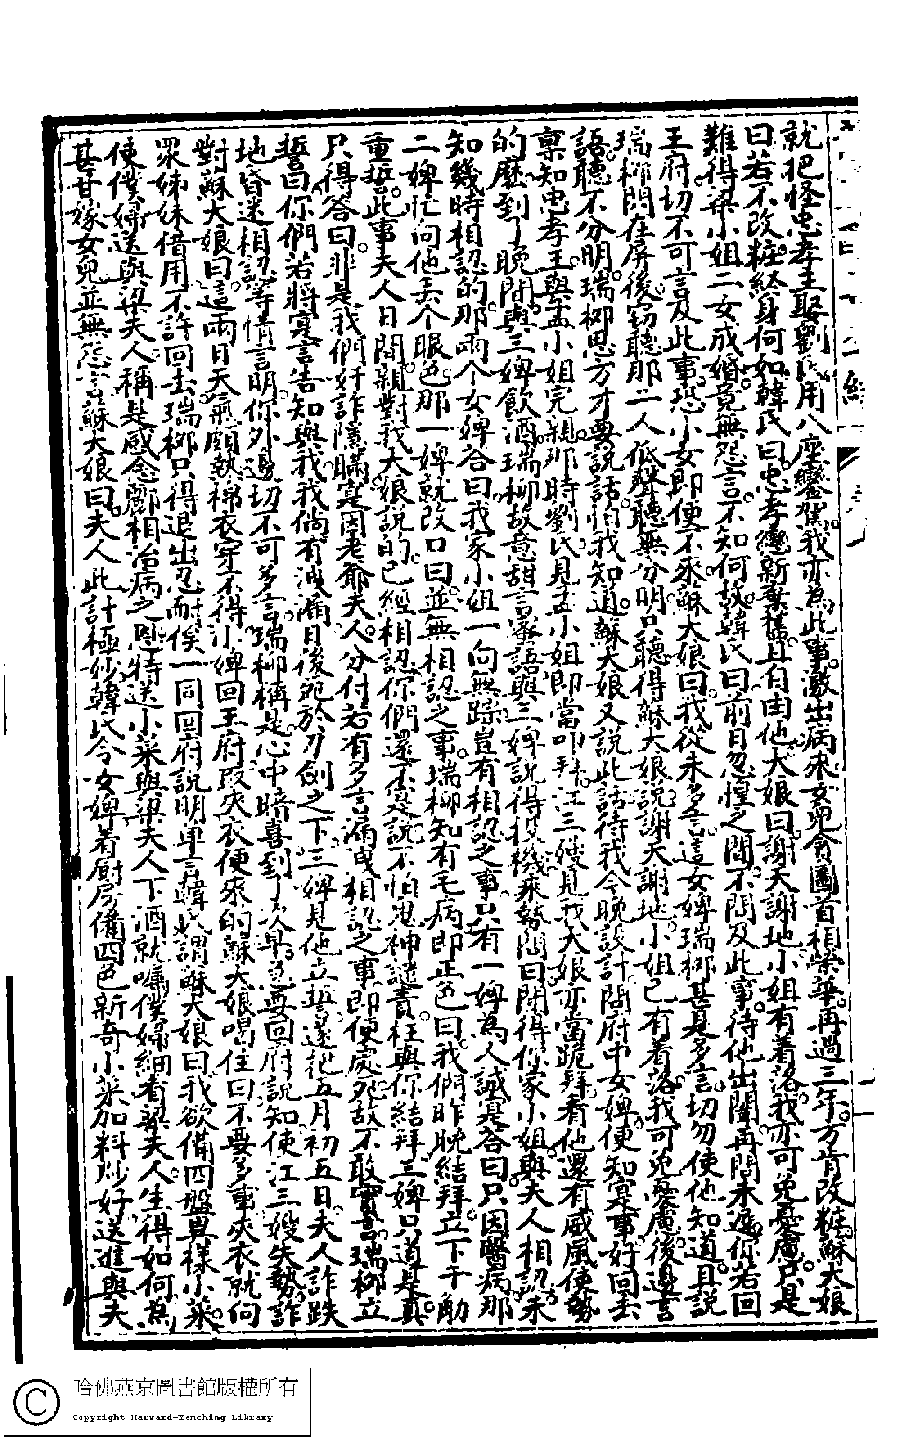 就把怪忠孝王娶劉氏用八座鑾駕我亦為此事激出病來女兒貪圖首相榮華再過三年方肯改粧蘇大娘
曰若不改粧終身何如韓氏曰忠孝戀新棄舊且自由他大娘曰謝天謝地小姐有着落我亦可免憂慮只是
難得梁小姐二女成婚竟無怨言不知何故韓氏曰前日忽惶之間不問及此事待他出閣再問未遲你若回
王府切不可言及此事恐小女即便不來蘇大娘曰我從未多言這女婢瑞柳甚是多言切勿使他知道且說
瑞柳閃在屏後窃聽那二人低聲聽無分明只聽得蘇大娘說謝天謝地小姐已有着落我可免憂慮後邊言
語聽不分明瑞柳思方才要說話怕我知道蘇大娘又說此話待我今晚設計問府中女婢便知寔事好回去
稟知忠孝王與孟小姐完親那時劉氏見孟小姐即當叩拜江三嫂見我大娘亦當跪拜看他還有威風使勢
的麼到了晚間與三婢飲酒瑞柳故意甜言蜜語與三婢說得投機乘勢問曰聞得你家小姐與夫人相認未
知幾時相認的那兩个女婢答曰我家小姐一向無踪豈有相認之事只有一婢為人誠寔答曰只因醫病那
二婢忙向他丟个眼色那一婢就改口曰並無相認之事瑞柳知有毛病即正色曰我們昨晚結拜立下千觔
重誓此事夫人日間親對我大娘說的已經相認你們還不寔說不怕鬼神譴責枉與你結拜三婢只道是真
只得答曰非是我們奸詐隱瞞寔因老爺夫人分付若有多言漏洩相認之事即便處死故不敢實言瑞柳立
誓曰你們若將寔言告知與我我倘有洩漏日後死於刀劍之下三婢見他立誓遂把五月初五日夫人詐跌
地昏迷相認等情言明你外邊切不可多言瑞柳稱是心中暗喜到了次早忽要回府說知使江三嫂失勢詐
對蘇大娘曰這兩日天氣頗熱棉衣穿不得小婢回王府取夾衣便來的蘇大娘喝住曰不要多事夾衣就向
眾姊妹借用不許回去瑞柳只得退出忍耐俟一同回府說明單言韓氏謂蘇大娘曰我欲備四盤異樣小菜
使僕婦送與梁夫人稱是感念酈相治病之恩特送小菜與梁夫人下酒就囑僕婦細看梁夫人生得如何為
甚甘嫁女兒並無怨言蘇大娘曰夫人此計極妙韓氏令女婢着厨房備四色新奇小菜加料炒好送進與夫
哈佛燕京圖書館版權所有
Copyright Harvard-Yenching Library